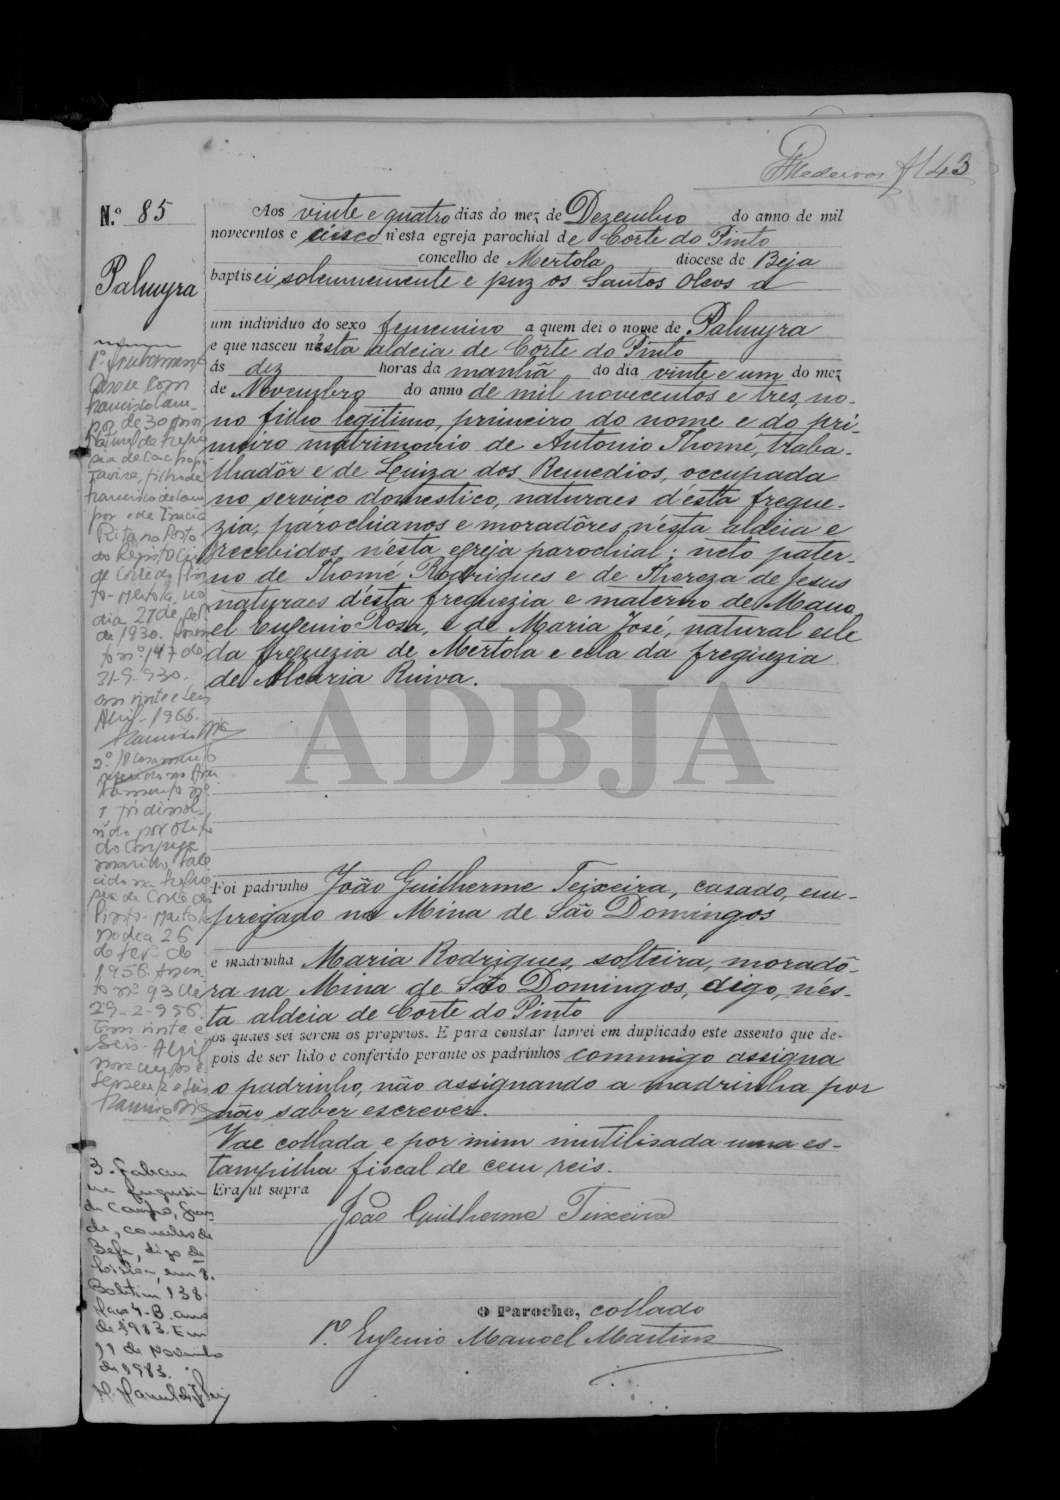 Medeiros fl 43
N.º 85
Palmyra
Aos vinte e quatro dias do mez de Dezembro do anno de mil
novecentos e cinco n'esta egreja parochial de Corte do Pinto
concelho de Mertola diocese de Beja
baptisei solemnemente e puz os Santos Oleos a
um individuo do sexo femenino a quem dei o nome de Palmyra
e que nasceu n'esta aldeia de Corte do Pinto
ás dez horas da manhã do dia vinte e um do mez
de Novembro do anno de mil novecentos e tres, no-
no filho legitimo, primeiro do nome e do pri-
meiro matrimonio de Antonio Thomé, traba-
lhadôr e de Luiza dos Remedios, occupada
no serviço domestico, naturaes d'esta fregue-
zia, parochianos e moradôres n'esta aldeia e
recebidos n'esta egreja parochial; neto pater-
no de Thomé Rodrigues e de Thereza de Jesus
naturaes d'esta freguezia e materno de Mano-
el Eugenio Rosa, e de Maria José, natural elle
da freguezia de Mertola e ella da freguezia
de Alcaria Ruiva.
ADBJA
Foi padrinho João Guilherme Teixeira, casado, em-
pregado na Mina de São Domingos
e madrinha Maria Rodrigues, solteira, moradô-
ra na Mina de São Domingos, digo, n'es-
ta aldeia de Corte do Pinto
os quaes sei serem os proprios. E para constar lavrei em duplicado este assento que de-
pois de ser lido e conferido perante os padrinhos commigo assigna
o padrinho, não assignando a madrinha por
não saber escrever.
Vae collada e por mim inutilisada uma es-
tampilha fiscal de cem reis.
Era ut supra
João Guilherme Teixeira
O Parocho, collado
P.e Eugenio Manoel Martins
1.º
Casou com
Francisco Cam-
por de 30 anos
natural da fregue-
Francisco de Cam
por e de
Rita no Posto
do Registo Civ
de Corte do Pin
to - Mertola, no
dia 27 de
de 1930.
to nº 147 de
31-9-930.
em vinte e seis
Abril - 1966.
2.º O casamento
1 foi dissol-
vido por obito
do conjuge
marido, fale
cido na fregue
zia de Corte do
Pinto - Mertola
no dia 26
de fev. de
1956. Assen-
to nº 93 de
29-2-956.
Em vinte e
seis - Abril
novecentos e
sessenta e seis
3. Faleceu
na freguesia
de Campo Gran-
de, concelho de
Beja, digo de
Lisboa, em 8.
Boletim 138
Maço 4-B. ano
de 1983. Em
11 de
de 1983.